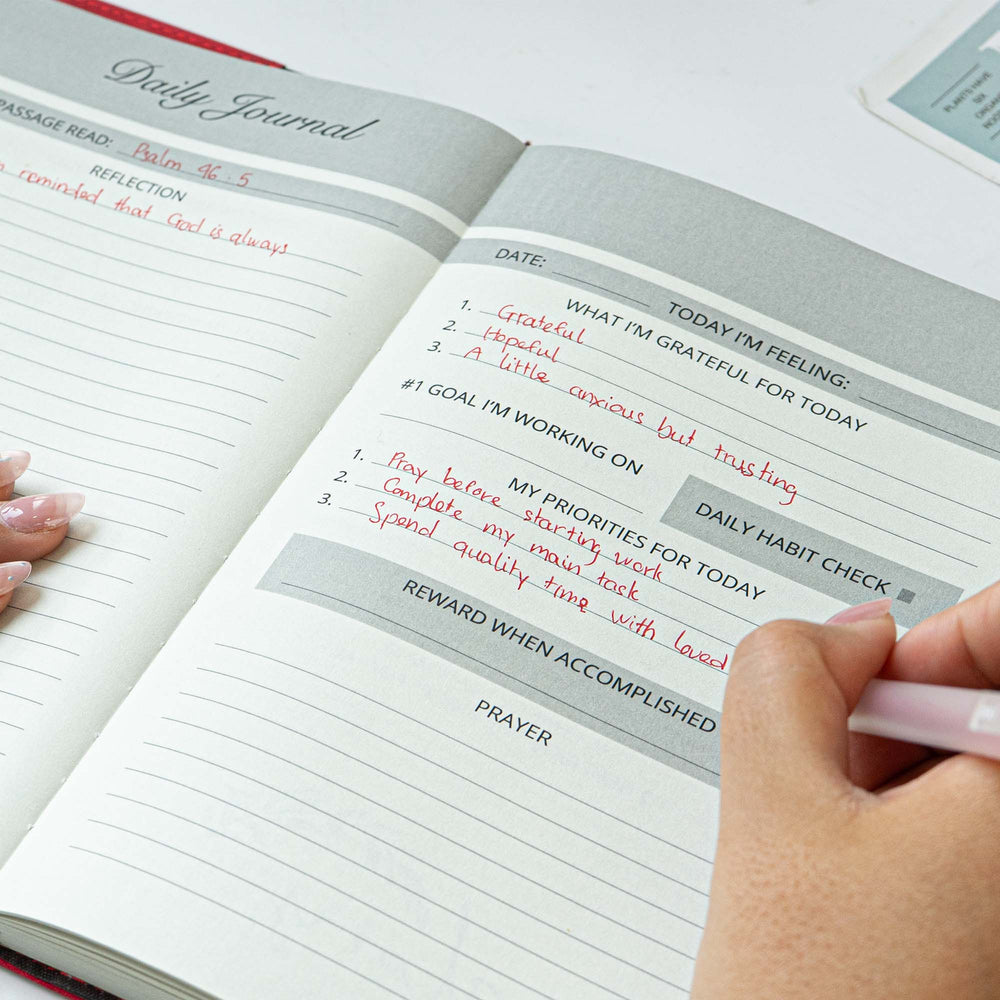 Daily Journal
PASSAGE READ: Psalm 46:5
REFLECTION
reminded that God is always
DATE: TODAY I'M FEELING:
WHAT I'M GRATEFUL FOR TODAY
1. Grateful
2. Hopeful
3. A little anxious but trusting
#1 GOAL I'M WORKING ON
DAILY HABIT CHECK
MY PRIORITIES FOR TODAY
1. Pray before starting work
2. Complete my main task
3. Spend quality time with loved
REWARD WHEN ACCOMPLISHED
PRAYER
PLANTS HAVE
SIX